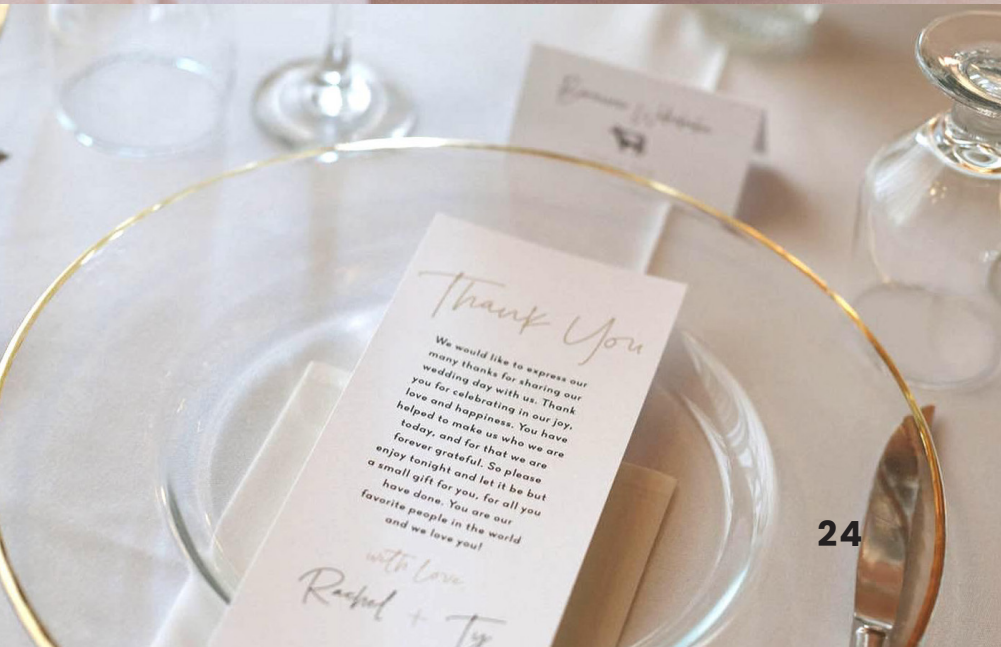 Thank You
We would like to express our
many thanks for sharing our
wedding day with us. Thank
you for celebrating in our joy,
love and happiness. You have
helped to make us who we are
today, and for that we are
forever grateful. So please
enjoy tonight and let it be but
a small gift for you, for all you
have done. You are our
favorite people in the world
and we love you!
with love
Rachel + Ty
24